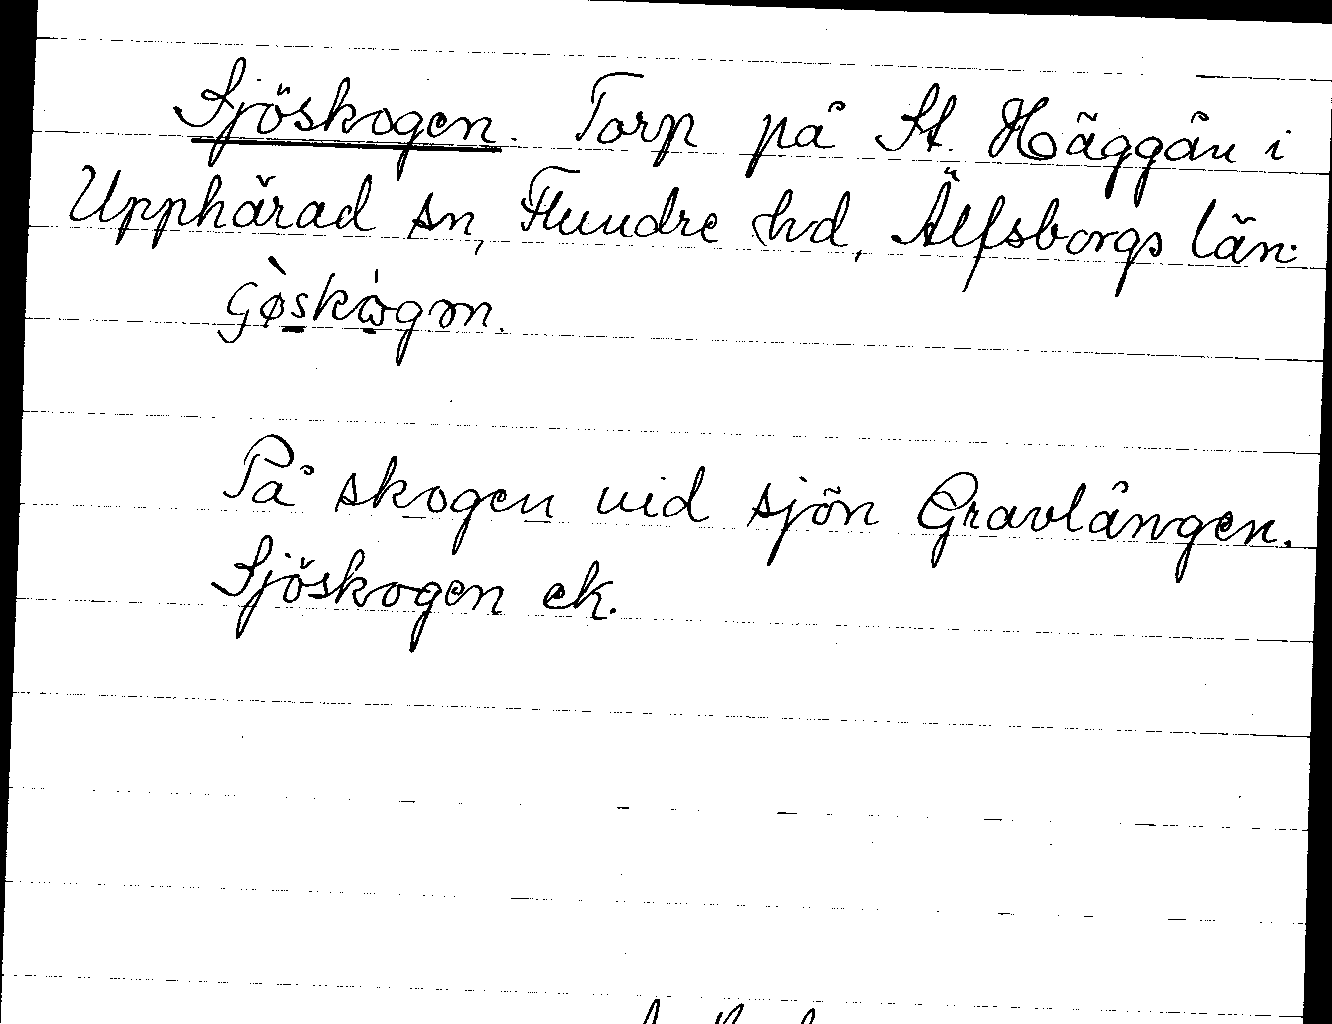 Sjöskogen. Torp på St. Häggån i
Upphärad sn, Flundre hd, Älfsborgs län.
På skogen vid sjön Gravlången.
Sjöskogen ek.